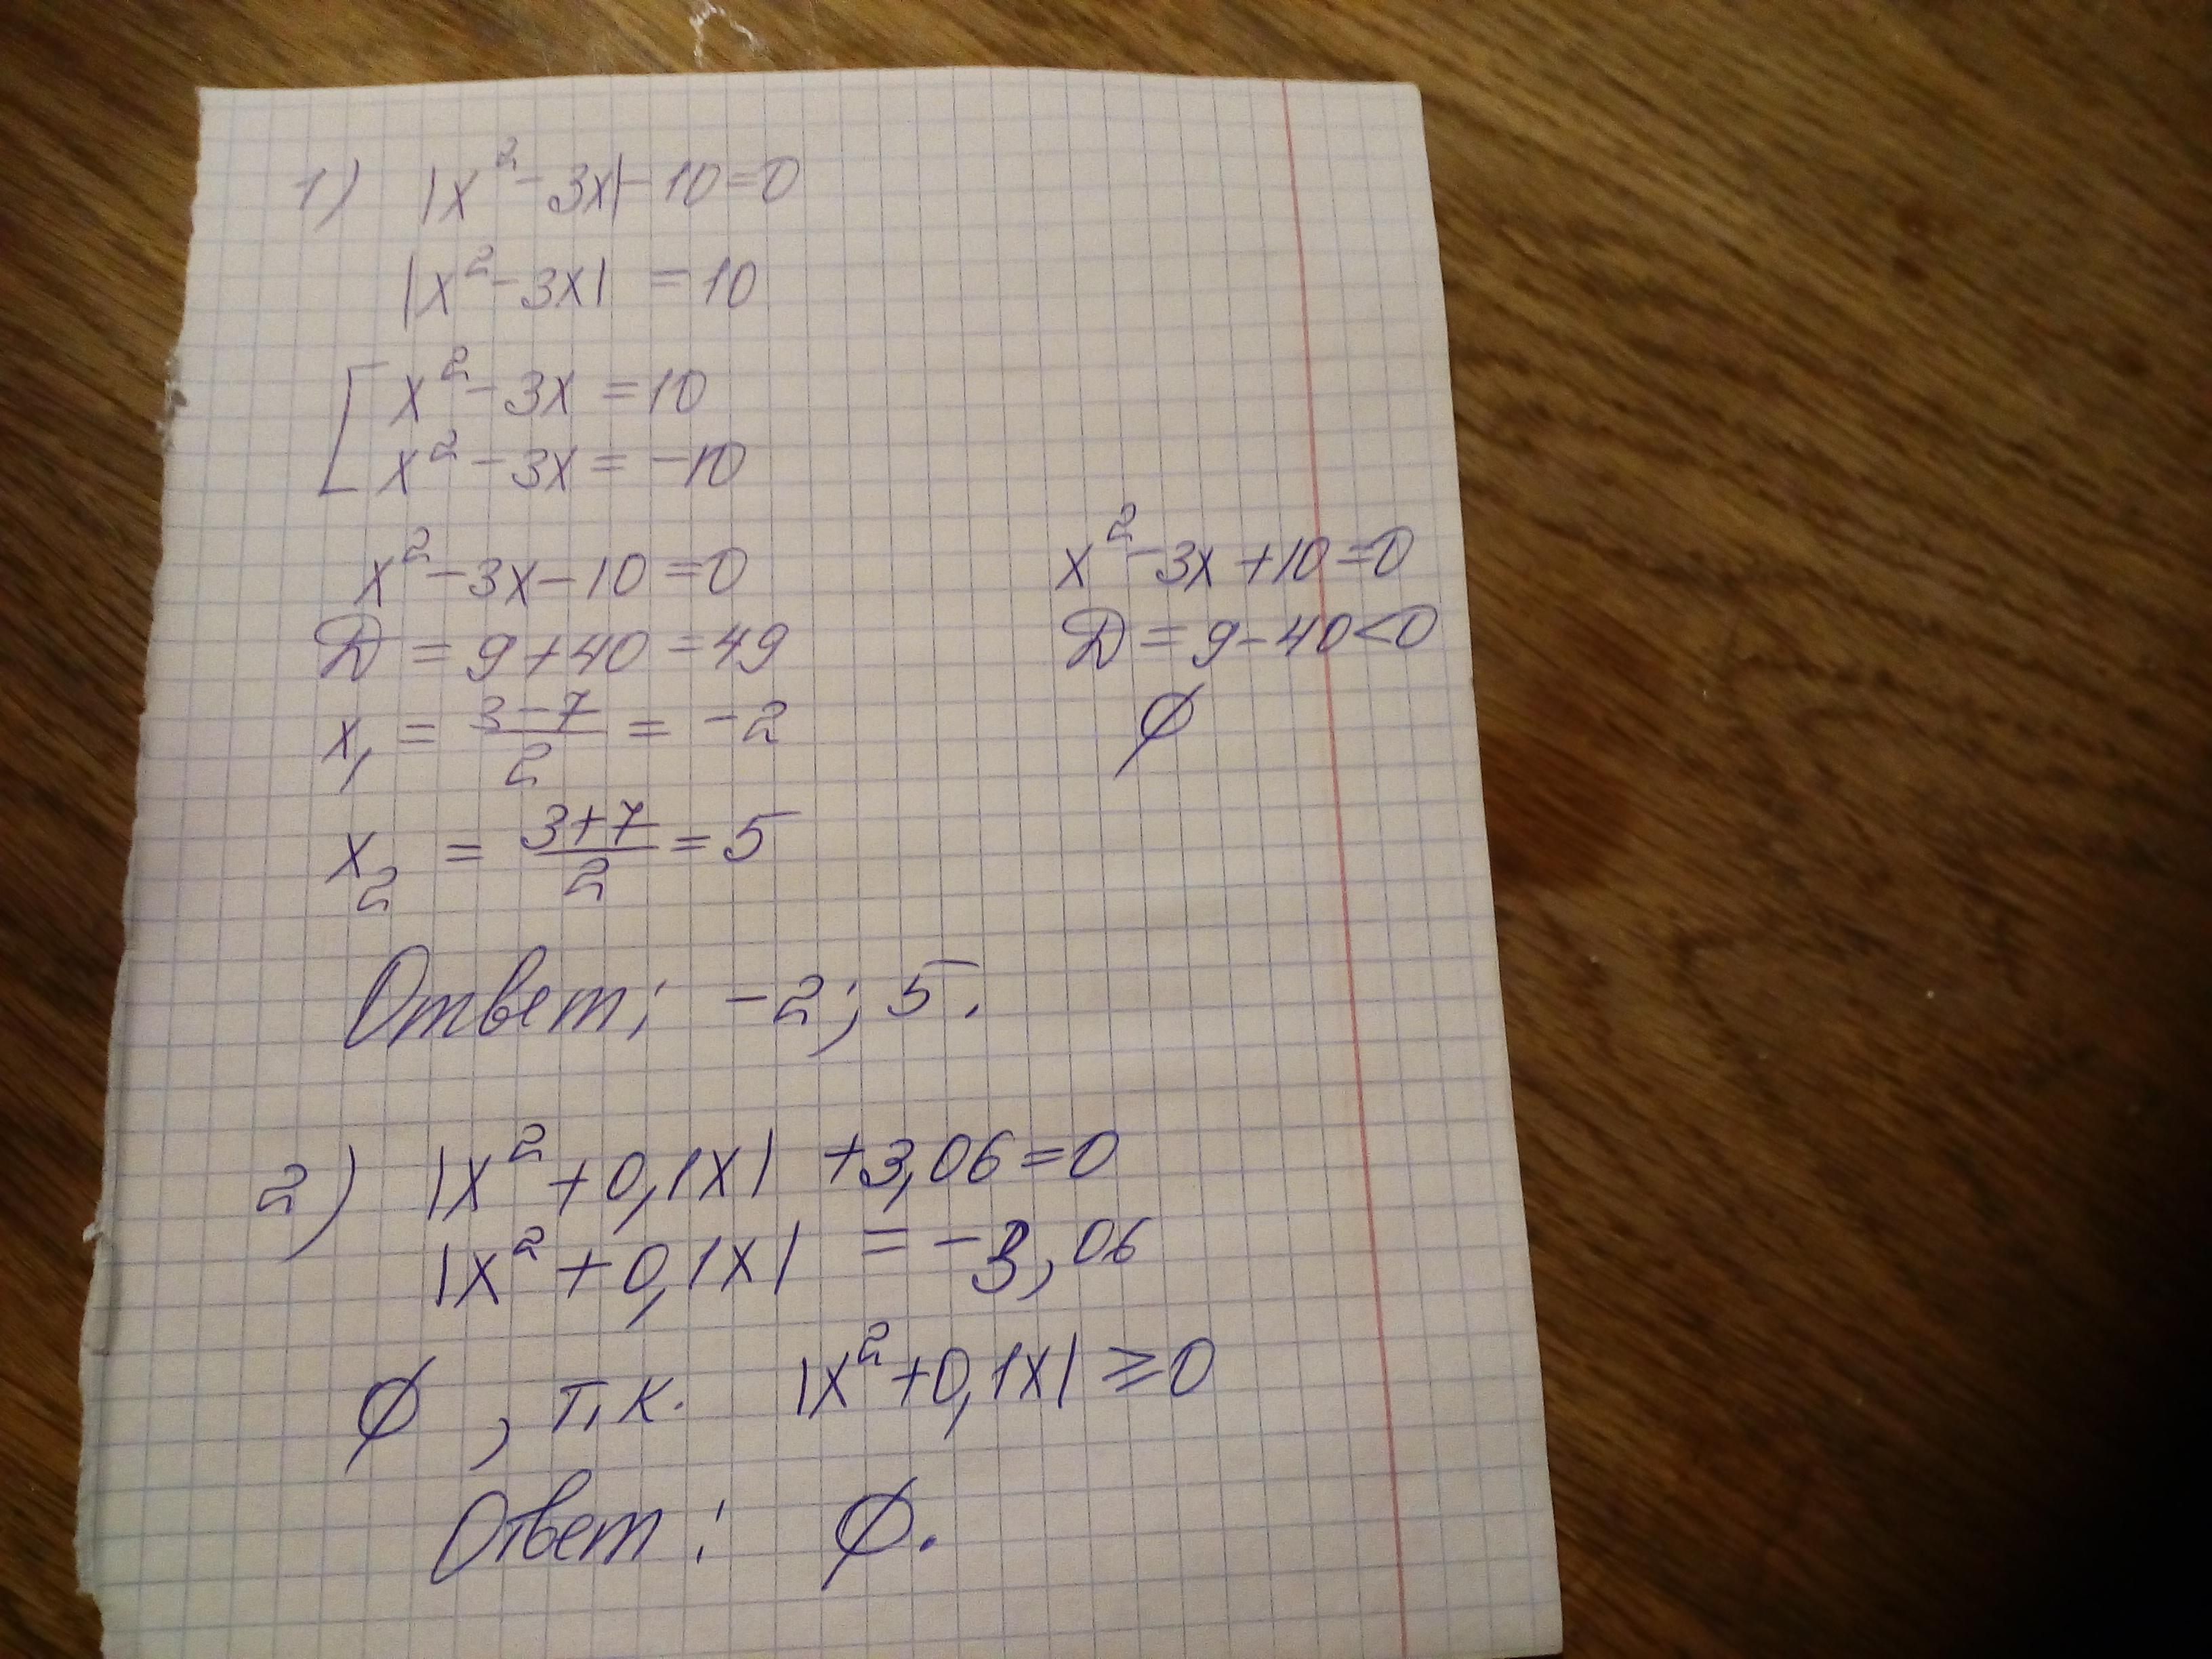 1) |x²-3x|-10=0
|x²-3x| =10
[ x²-3x=10
x²-3x=-10
x²-3x-10=0
D=9+40=49
x₁ = (3-7)/2 = -2
x₂ = (3+7)/2 = 5
x²-3x+10=0
D=9-40<0
∅
Ответ: -2; 5.
2) |x²+0,1x| +3,06=0
|x²+0,1x| =-3,06
∅, т.к. |x²+0,1x| ⩾0
Ответ: ∅.